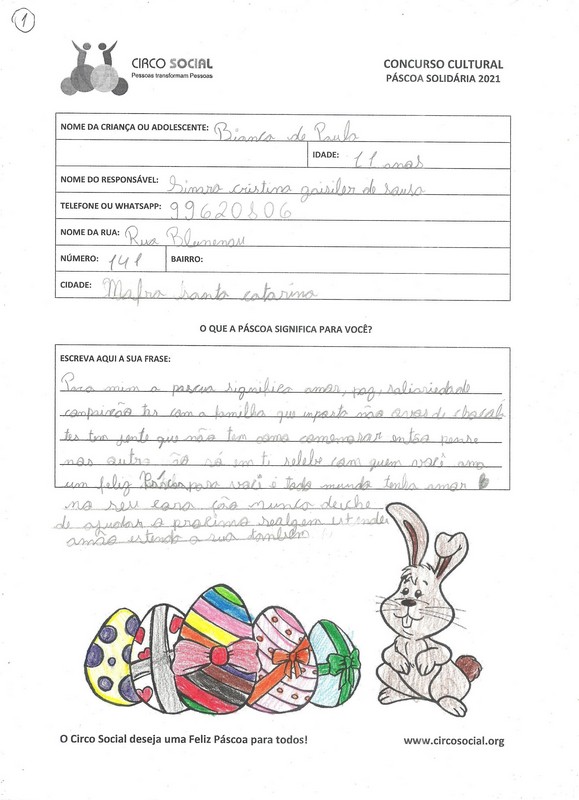 1
CIRCO SOCIAL
Pessoas transformam Pessoas
CONCURSO CULTURAL
PÁSCOA SOLIDÁRIA 2021
NOME DA CRIANÇA OU ADOLESCENTE: Bianca de Paula
IDADE: 11 anos
NOME DO RESPONSÁVEL: cristina de
TELEFONE OU WHATSAPP: 99620806
NOME DA RUA: Rua Blumenau
NÚMERO: 141 BAIRRO:
CIDADE: Mafra santa catarina
O QUE A PÁSCOA SIGNIFICA PARA VOCÊ?
ESCREVA AQUI A SUA FRASE:
Para mim a pascua significa amor, paz, saliariedade
conpaixão tes com a familha que inporta não ovos de chacalá
tes tem jente que não tem como comemorar então pense
nos outro não só em ti selebe com quem você ama
um feliz Páscoa para você é todo mundo tenha amor
no seu cora ção nunca deiche
de ajudar o procimo
amão estenda a sua tanbem
O Circo Social deseja uma Feliz Páscoa para todos!
www.circosocial.org